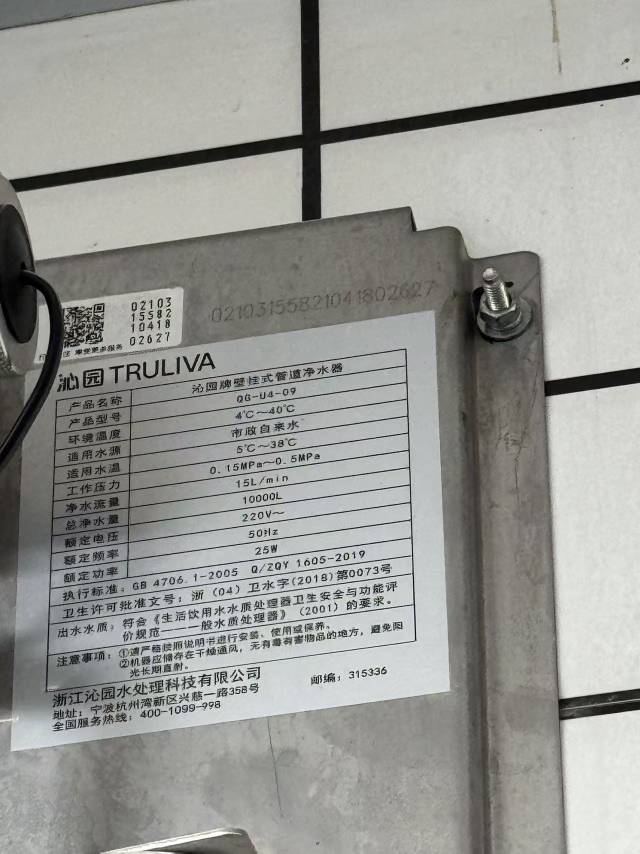 02103
15582
10418
02627
021031558210418 02627
享受更多服务
沁园 TRULIVA
产品名称 沁园牌壁挂式管道净水器
产品型号 QG-U4-09
环境温度 4℃～40℃
适用水源 市政自来水
适用水温 5℃～38℃
工作压力 0.15MPa～0.5MPa
净水流量 15L/min
总净水量 10000L
额定电压 220V～
额定频率 50Hz
额定功率 25W
执行标准: GB 4706.1-2005 Q/ZQY 1605-2019
卫生许可批准文号: 浙（04）卫水字(2018)第0073号
出水水质: 符合《生活饮用水水质处理器卫生安全与功能评
价规范——一般水质处理器》（2001）的要求。
注意事项: ①请严格按照说明书进行安装、使用或保养。
②机器应储存在干燥通风，无有毒有害物品的地方，避免阳
光长期直射。
浙江沁园水处理科技有限公司
地址: 宁波杭州湾新区兴慈一路358号 邮编: 315336
全国服务热线: 400-1099-998